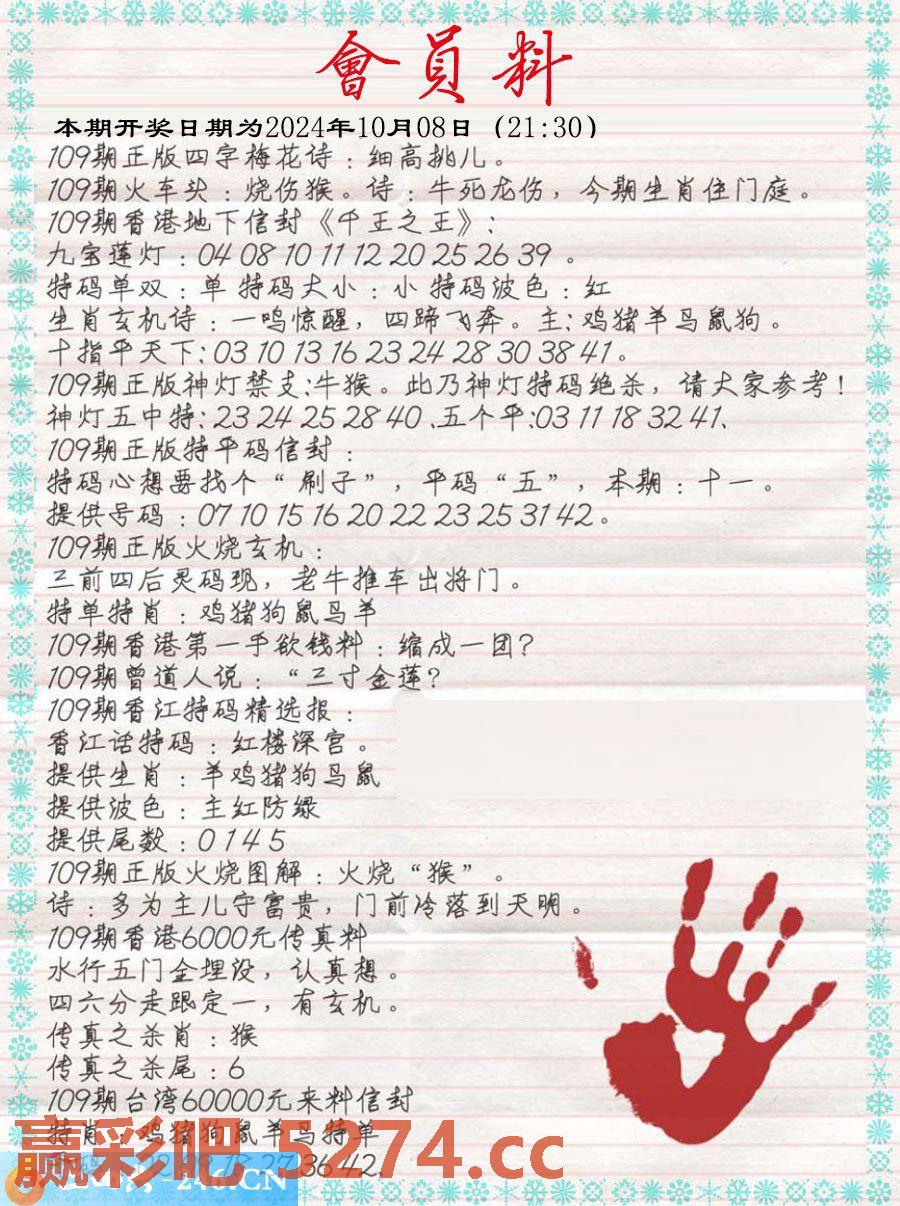 會員料
本期开奖日期为2024年10月08日（21:30）
109期正版四字梅花诗：细高挑儿。
109期火车头：烧伤猴。诗：牛死龙伤，今期生肖住门庭。
109期香港地下信封《千王之王》：
九宝莲灯：04 08 10 11 12 20 25 26 39 。
特码单双：单 特码大小：小 特码波色：红
生肖玄机诗：一鸣惊醒，四蹄飞奔。主：鸡猪羊马鼠狗。
十指平天下：03 10 13 16 23 24 28 30 38 41。
109期正版神灯禁支：牛猴。此乃神灯特码绝杀，请大家参考！
神灯五中特：23 24 25 28 40 、五个平：03 11 18 32 41、
109期正版特平码信封：
特码心想要找个“刷子”，平码“五”，本期：十一。
提供号码：07 10 15 16 20 22 23 25 31 42。
109期正版火烧玄机：
三前四后灵码现，老牛推车出将门。
特单特肖：鸡猪狗鼠马羊
109期香港第一手欲钱料：缩成一团？
109期曾道人说：“三寸金莲？
109期香江特码精选报：
香江话特码：红楼深宫。
提供生肖：羊鸡猪狗马鼠
提供波色：主红防绿
提供尾数：0 1 4 5
109期正版火烧图解：火烧“猴”。
诗：多为主儿守富贵，门前冷落到天明。
109期香港6000元传真料
水行五门金埋没，认真想。
四六分走跟定一，有玄机。
传真之杀肖：猴
传真之杀尾：6
109期台湾60000元来料信封
特肖：鸡猪狗鼠羊马特单
36 42、
赢彩吧.5274.cc
246.CN